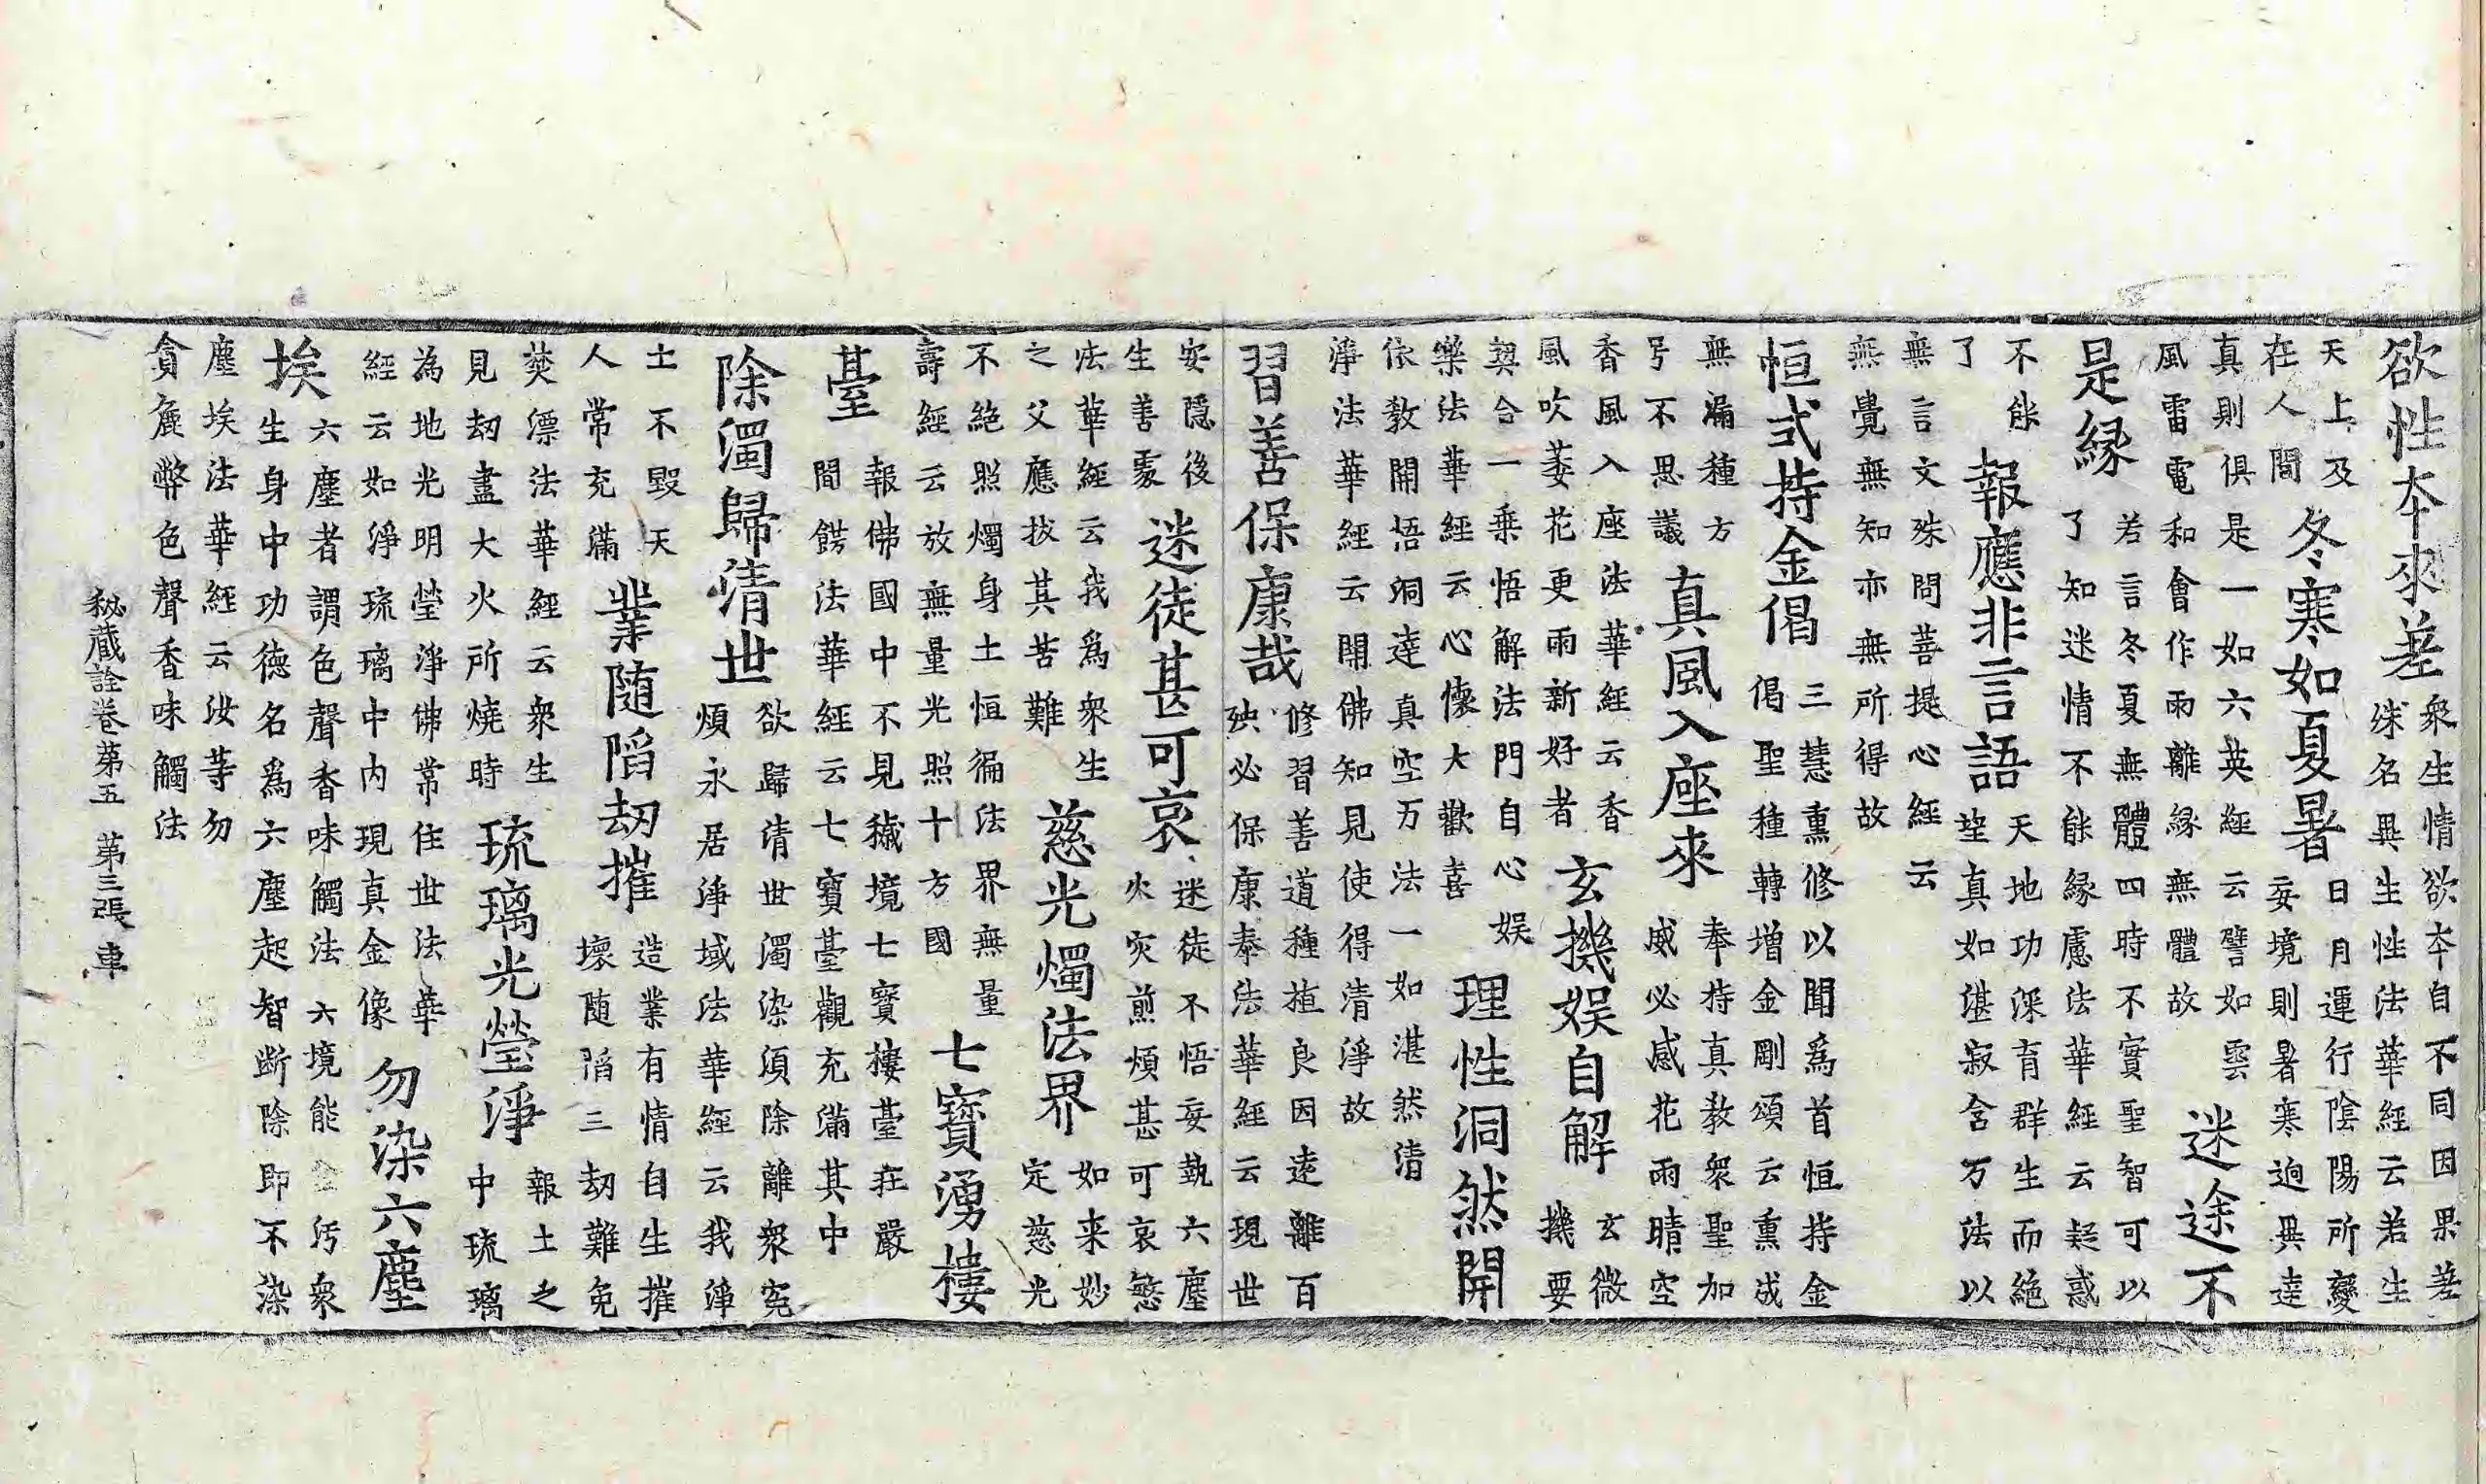 欲性本來差衆生情欲本自不同因果差殊名異生性法華經云若生
天上及在人間冬寒如夏暑日月運行陰陽所變妄境則暑寒逈異達
真則俱是一如六英經云譬如雲風雷電和會作雨離緣無體故迷途不
是緣若言冬夏無體四時不實聖智可以了知迷情不能緣慮法華經云疑惑
不能了報應非言語天地功深育群生而絶真如湛寂含万法以
無言文殊問菩提心經云無覺無知亦無所得故
恒式持金偈三慧熏修以聞爲首恒持金偈聖種轉增金剛頌云熏成
無漏種方号不思議真風入座來奉持真教衆聖加威必感花雨晴空
香風入座法華經云香風吹萎花更雨新好者玄機娱自解玄微機要
契合一乗悟解法門自心娱樂法華經云心懷大歡喜理性洞然開
依教開悟洞達真空万法一如湛然清淨法華經云開佛知見使得清淨故
習善保康哉修習善道種植良因逺離百殃必保康泰法華經云現世
安隱後生善䖏迷徒甚可哀迷徒不悟妄執六塵火灾煎煩甚可哀愍
法華經云我爲衆生之父應拔其苦難慈光燭法界如来妙定慈光
不絶照燭身土恒徧法界無量壽經云放無量光照十方國七寳湧樓
臺報佛國中不見穢境七寳樓臺莊嚴間錯法華經云七寳臺觀充滿其中
除濁歸清世欲歸清世濁染須除離衆寃煩永居淨域法華經云我淨
土不毀天人常充滿業随陷劫摧造業有情自生摧壞随陷三劫難免
焚漂法華經云衆生見劫盡大火所燒時琉璃光瑩淨報土之中琉璃
為地光明瑩淨佛常住世法華經云如淨琉璃中内現真金像勿染六塵
埃六塵者謂色聲香味觸法六境能汚衆生身中功德名爲六塵起智断除即不染
塵埃法華經云汝等勿貪麁弊色聲香味觸法
秘藏詮卷第五 第三張 車